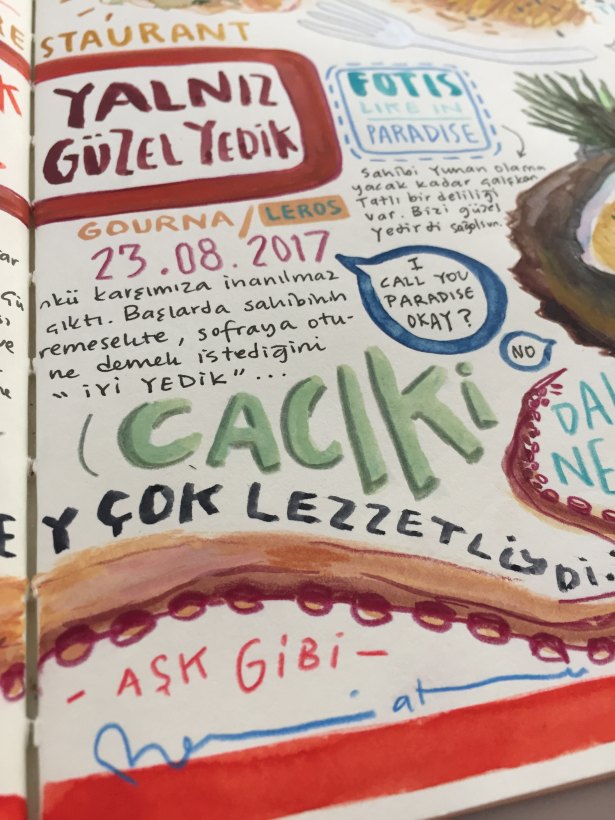 STAURANT
YALNIZ
GÜZEL YEDİK
FOTIS
LIKE IN
PARADISE
Sahibi Yunan olama
yacak kadar çalışkan
Tatlı bir deliliği
var. Bizi güzel
yedirdi sağolsun.
GOURNA/LEROS
23.08.2017
nkü karşımıza inanılmaz
çıktı. Başlarda sahibinin
remesekte, sofraya otu-
ne demek istediğini
"İYİ YEDİK"...
I
CALL YOU
PARADISE
OKAY?
NO
(CACIKİ
DA
NE
EY ÇOK LEZZETLİYDİ.
- AŞK GİBİ -